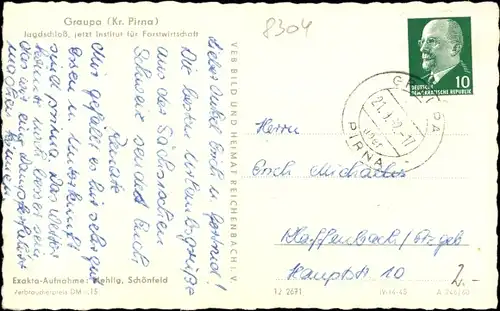 Graupa (Kr. Pirna)
Jagdschloß, jetzt Institut für Forstwirtschaft
8304
VEB BILD UND HEIMAT REICHENBACH I. V.
DEUTSCHE
DEMOKRATISCHE REPUBLIK
10
GRAUPA
über
PIRNA
Lieber Onkel Erich u. Gertrud!
Die besten Urlaubsgrüße
aus der Sächsischen
Schweiz sendet Euch
Renate
Uns gefällt es hier sehr gut
Essen u. Unterkunft
sind prima. Das Wetter
könnte noch besser sein
das wir eine Dampferfahrt
machen können.
Herrn
Erich Michaelis
Klaffenbach/Erzgeb
Hauptstr 10
2,-
Exakta-Aufnahme: Mehlig, Schönfeld
Verbraucherpreis DM 0,15
12 2671
IV-14-45
A 246/60